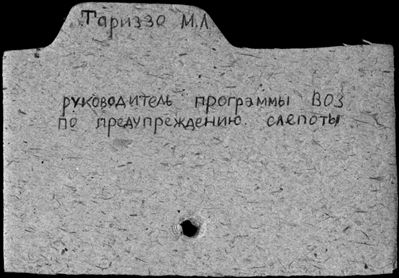 Тариззо М.Л.
руководитель программы ВОЗ
по предупреждению слепоты